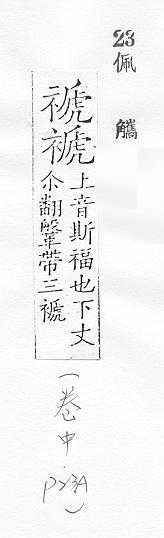 23
佩觿
禠褫
上音斯福也下丈
尒翻鞶帶三褫
(卷中.
P23A)